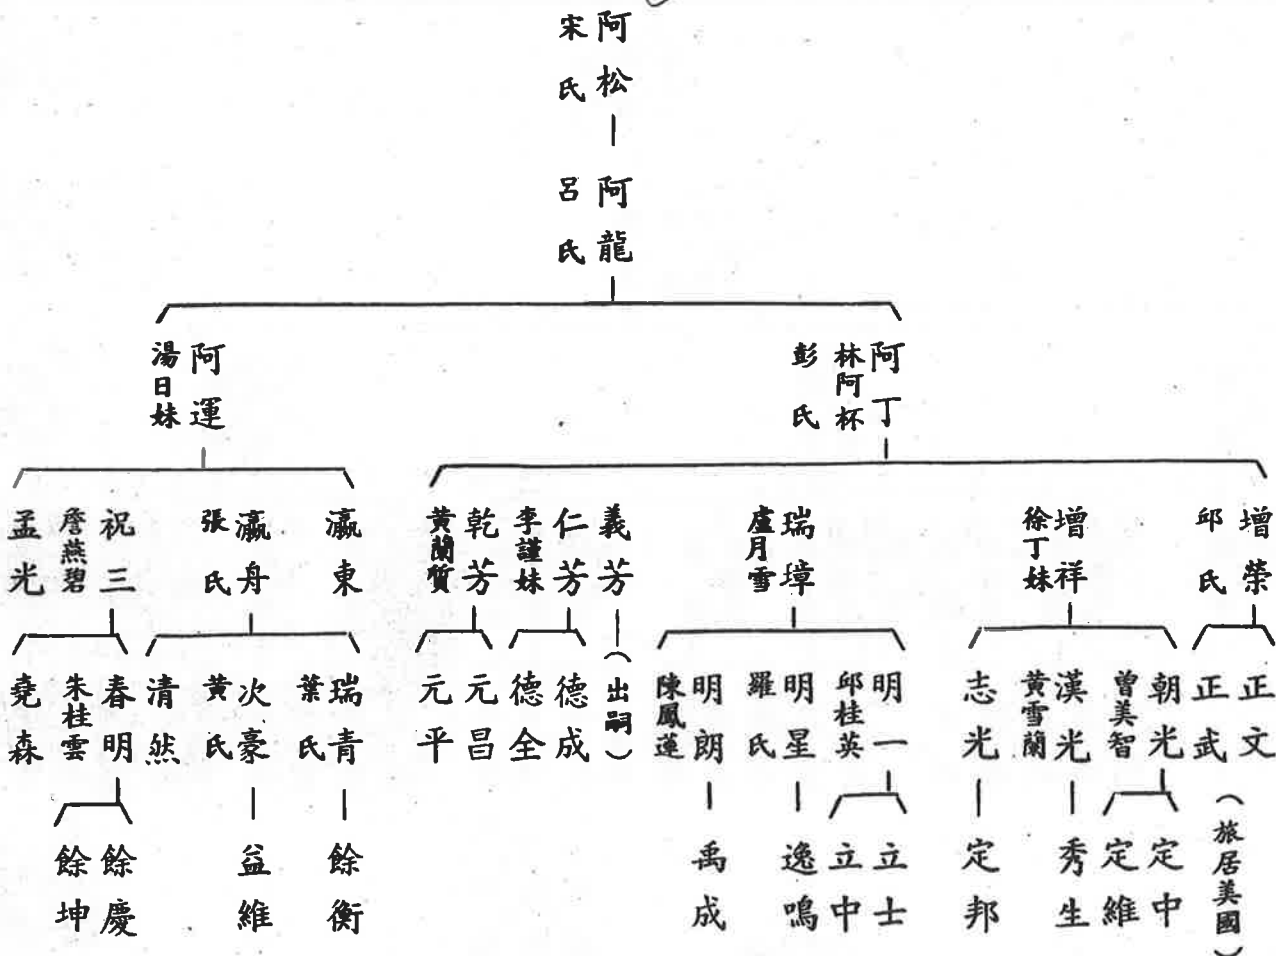 阿松
宋氏
阿龍
呂氏
阿丁
林阿杯
彭氏
阿運
湯日妹
增榮
邱氏
增祥
徐丁妹
瑞璋
盧月雪
義芳
仁芳
李謹妹
乾芳
黃蘭質
瀛東
瀛舟
張氏
祝三
詹燕碧
孟光
正文
正武
(旅居美國)
朝光
曾美智
漢光
黃雪蘭
志光
明一
邱桂英
明星
羅氏
明朗
陳鳳蓮
(出嗣)
德成
德全
元昌
元平
瑞青
葉氏
次豪
黃氏
清然
春明
朱桂雲
堯森
定中
定維
秀生
定邦
立士
立中
逸鳴
禹成
餘衡
益維
餘慶
餘坤